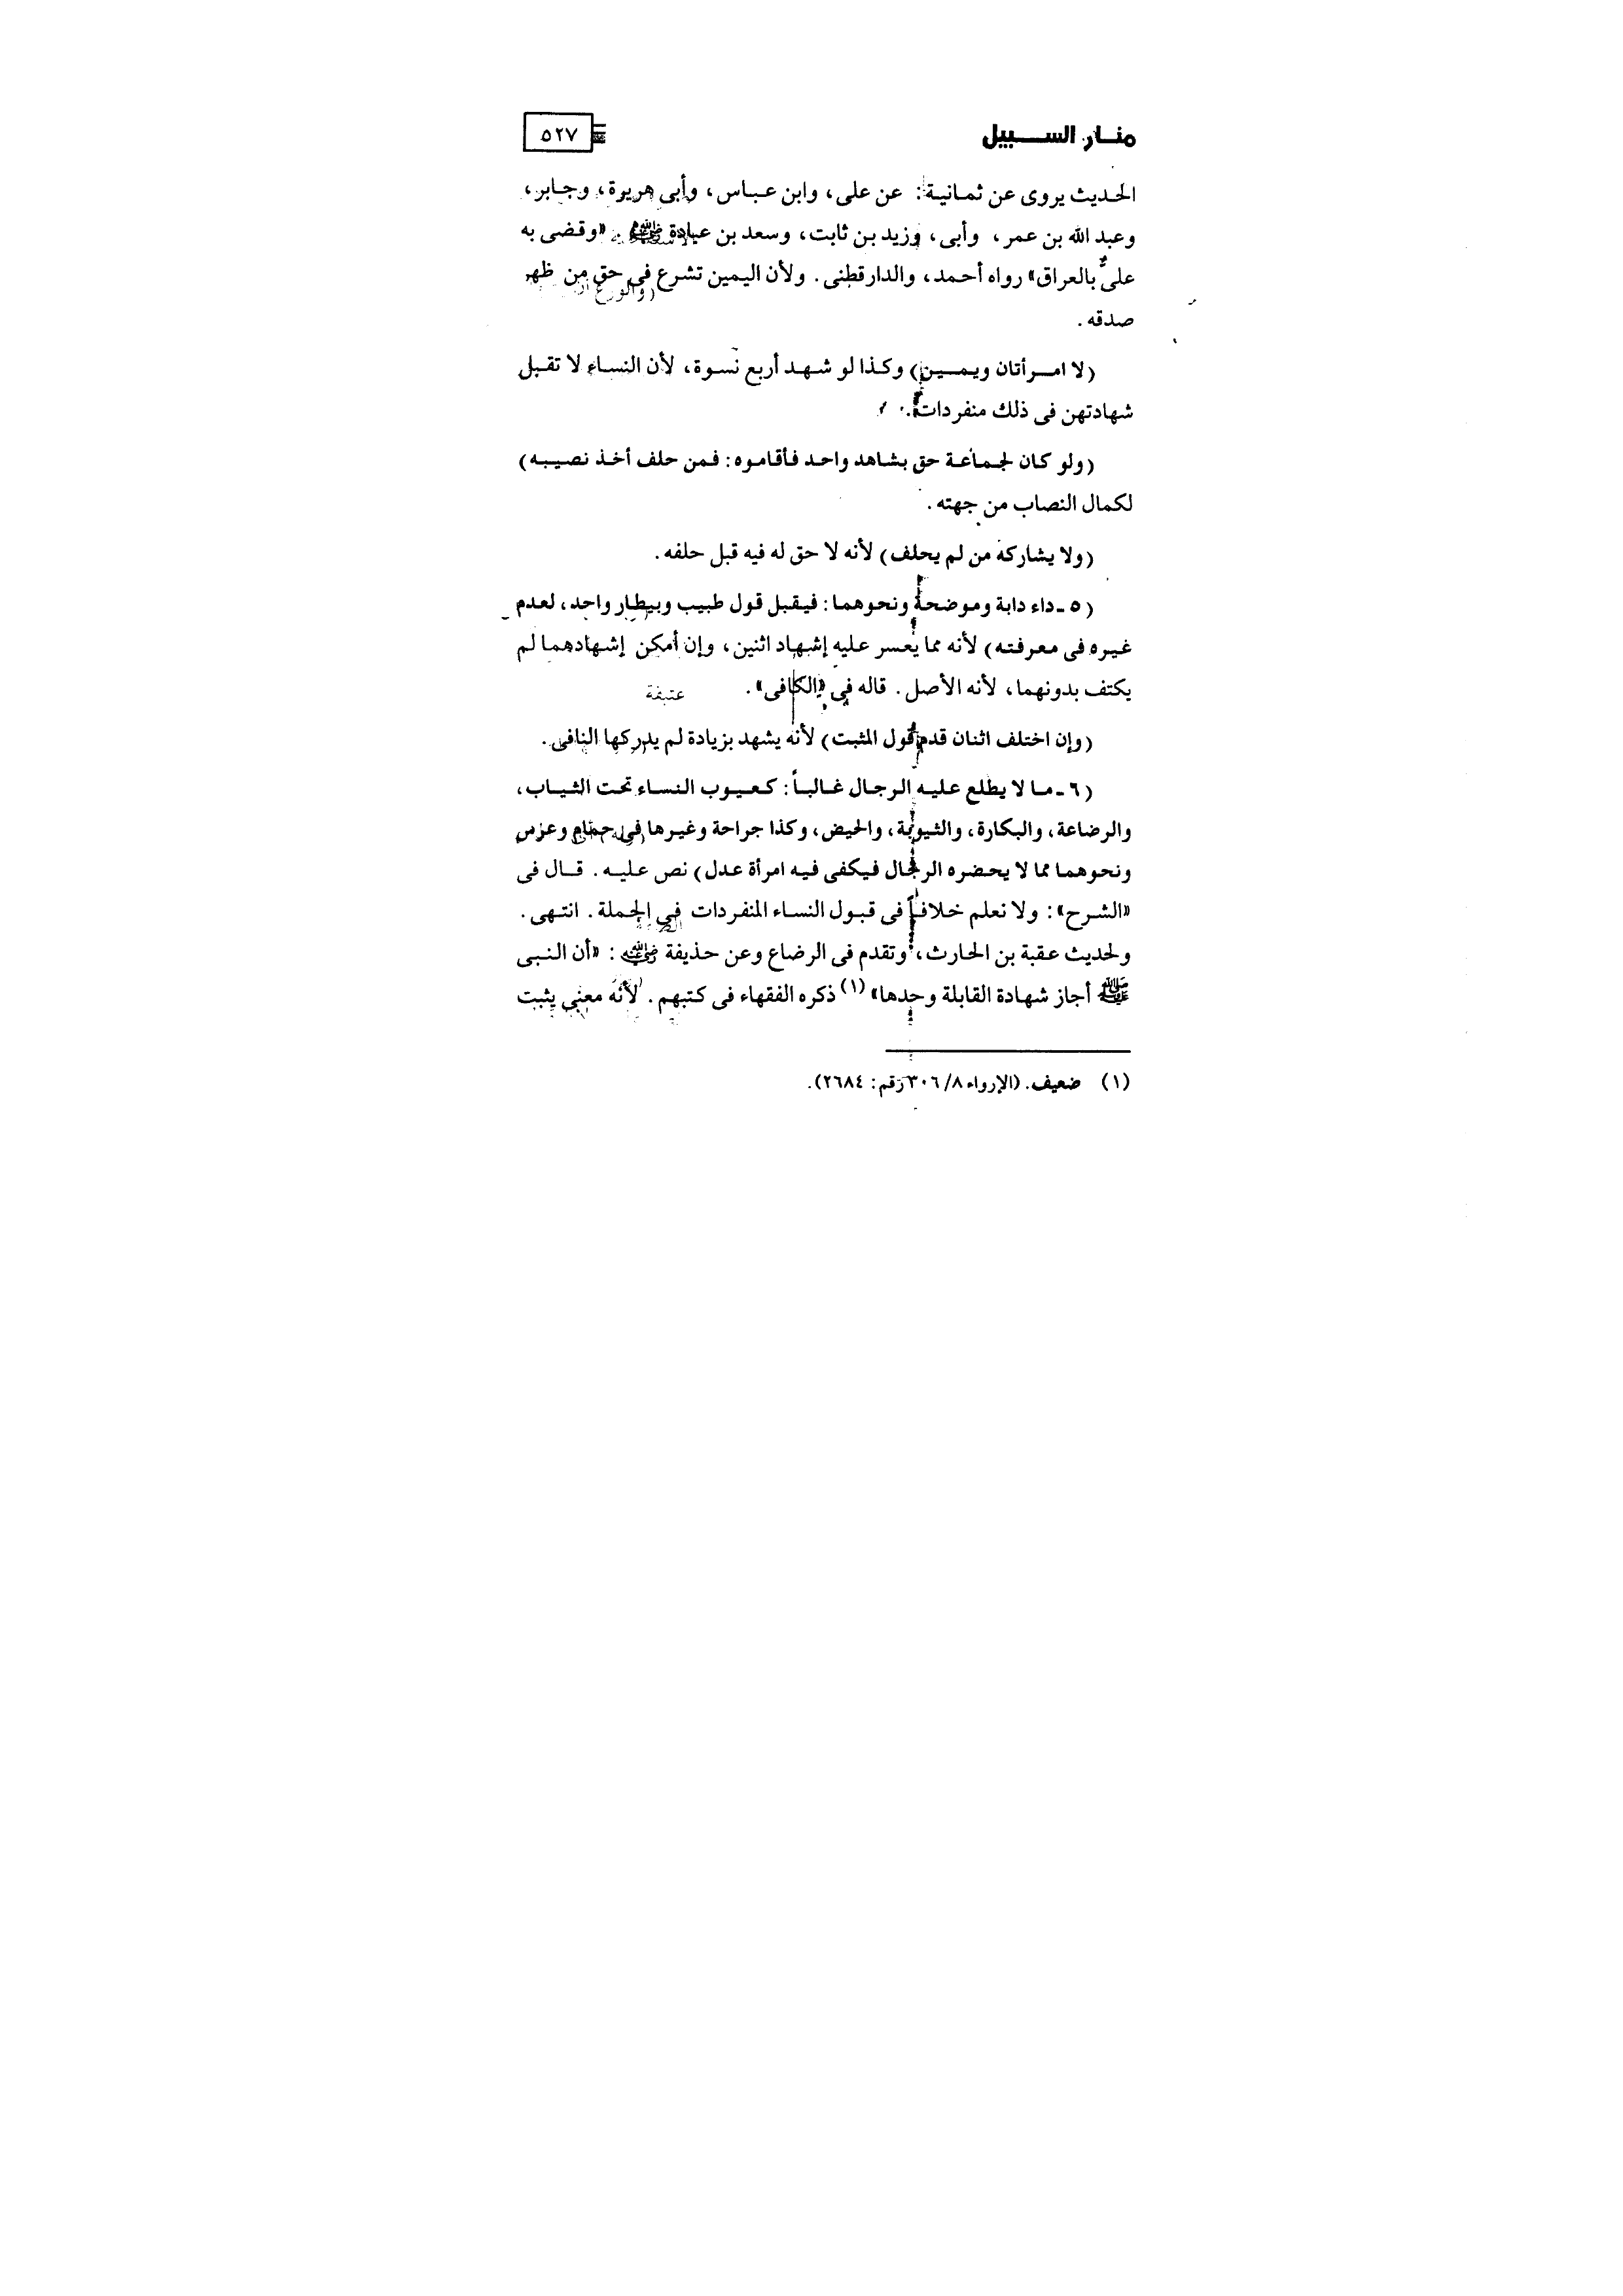 منار السبيل
٥٢٧
الحديث يروى عن ثمانية: عن على، وابن عباس، وأبى هريرة، وجابر،
وعبد الله بن عمر، وأبى، وزيد بن ثابت، وسعد بن عبادة رضي الله عنهم. «وقضى به
علىٌّ بالعراق» رواه أحمد، والدارقطنى. ولأن اليمين تشرع فى حق من ظهر
صدقه.
(لا امرأتان ويمين) وكذا لو شهد أربع نسوة، لأن النساء لا تقبل
شهادتهن فى ذلك منفردات.
(ولو كان لجماعة حق بشاهد واحد فأقاموه: فمن حلف أخذ نصيبه)
لكمال النصاب من جهته.
(ولا يشاركه من لم يحلف) لأنه لا حق له فيه قبل حلفه.
(٥ـ داء دابة وموضحة ونحوهما: فيقبل قول طبيب وبيطار واحد، لعدم
غيره فى معرفته) لأنه مما يعسر عليه إشهاد اثنين، وإن أمكن إشهادهما لم
يكتف بدونهما، لأنه الأصل. قاله فى «الكافى».
(وإن اختلف اثنان قدم قول المثبت) لأنه يشهد بزيادة لم يدركها النافى.
(٦ـ ما لا يطلع عليه الرجال غالباً: كعيوب النساء تحت الثياب،
والرضاعة، والبكارة، والثيوبة، والحيض، وكذا جراحة وغيرها فى حمام وعرس
ونحوهما مما لا يحضره الرجال فيكفى فيه امرأة عدل) نص عليه. قال فى
«الشرح»: ولا نعلم خلافاً فى قبول النساء المنفردات فى الجملة. انتهى.
ولحديث عقبة بن الحارث، وتقدم فى الرضاع وعن حذيفة رضي الله عنه: «أن النبى
ﷺ أجاز شهادة القابلة وحدها» (١) ذكره الفقهاء فى كتبهم. لأنه معنى يثبت
(١) ضعيف. (الإرواء ٨/ ٣٠٦ رقم: ٢٦٨٤).